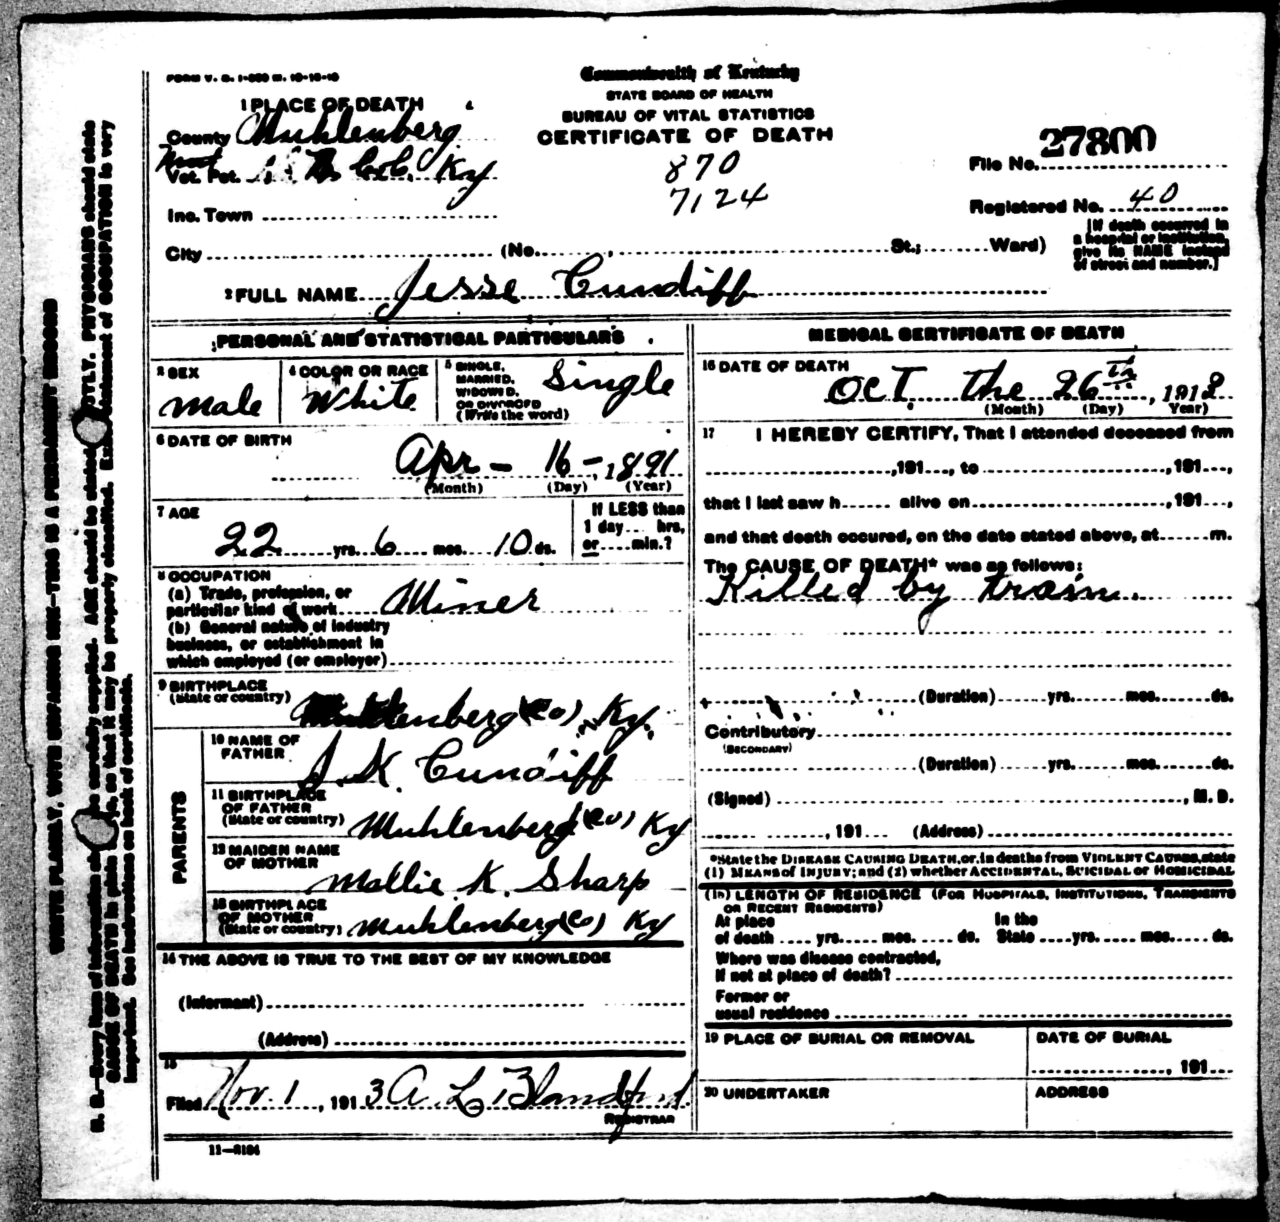 Commonwealth of Kentucky
STATE BOARD OF HEALTH
BUREAU OF VITAL STATISTICS
CERTIFICATE OF DEATH
870
7124
1 PLACE OF DEATH
County Muhlenberg
Vot. Pct. Ky
Inc. Town
City (No. St.; Ward)
File No. 27800
Registered No. 40
[If death occurred in
a hospital or institution,
give its NAME instead
of street and number.]
2 FULL NAME Jesse Cundiff
PERSONAL AND STATISTICAL PARTICULARS
3 SEX
male
4 COLOR OR RACE
White
5 SINGLE,
MARRIED,
WIDOWED,
OR DIVORCED
(Write the word)
Single
6 DATE OF BIRTH
Apr - 16 - 1891
(Month) (Day) (Year)
7 AGE
22 yrs. 6 mos. 10 ds.
If LESS than
1 day... hrs,
or....min.?
8 OCCUPATION
(a) Trade, profession, or
particular kind of work Miner
(b) General nature of industry
business, or establishment in
which employed (or employer)
9 BIRTHPLACE
(State or country) Muhlenberg (co) Ky.
PARENTS
10 NAME OF
FATHER
J. K. Cundiff
11 BIRTHPLACE
OF FATHER
(State or country) Muhlenberg (co) Ky
12 MAIDEN NAME
OF MOTHER
Mollie K. Sharp
13 BIRTHPLACE
OF MOTHER
(State or country) Muhlenberg (co) Ky
14 THE ABOVE IS TRUE TO THE BEST OF MY KNOWLEDGE
(Informant)
(Address)
15
Filed Nov. 1, 1913 A L Blandford
REGISTRAR
11—3184
MEDICAL CERTIFICATE OF DEATH
16 DATE OF DEATH
Oct. the 26th, 1913
(Month) (Day) Year)
17 I HEREBY CERTIFY, That I attended deceased from
,191..., to ,191...,
that I last saw h...... alive on ,191...,
and that death occured, on the date stated above, at......m.
The CAUSE OF DEATH* was as follows:
Killed by train.
(Duration) yrs. mos. ds.
Contributory
(SECONDARY)
(Duration) yrs. mos. ds.
(Signed) , M. D.
, 191... (Address)
*State the DISEASE CAUSING DEATH, or, in deaths from VIOLENT CAUSES, state
(1) MEANS of INJURY; and (2) whether ACCIDENTAL, SUICIDAL or HOMICIDAL
(18) LENGTH OF RESIDENCE (FOR HOSPITALS, INSTITUTIONS, TRANSIENTS
OR RECENT RESIDENTS)
At place In the
of death .... yrs. mos. ds. State ....yrs. mos. ds.
Where was disease contracted,
if not at place of death?
Former or
usual residence
19 PLACE OF BURIAL OR REMOVAL
DATE OF BURIAL
, 191...
20 UNDERTAKER
ADDRESS
WRITE PLAINLY, WITH UNFADING INK—THIS IS A PERMANENT RECORD
N. B.—Every item of information should be carefully supplied. AGE should be stated EXACTLY. PHYSICIANS should state
CAUSE OF DEATH in plain terms, so that it may be properly classified. Exact statement of OCCUPATION is very
important. See instructions on back of certificate.